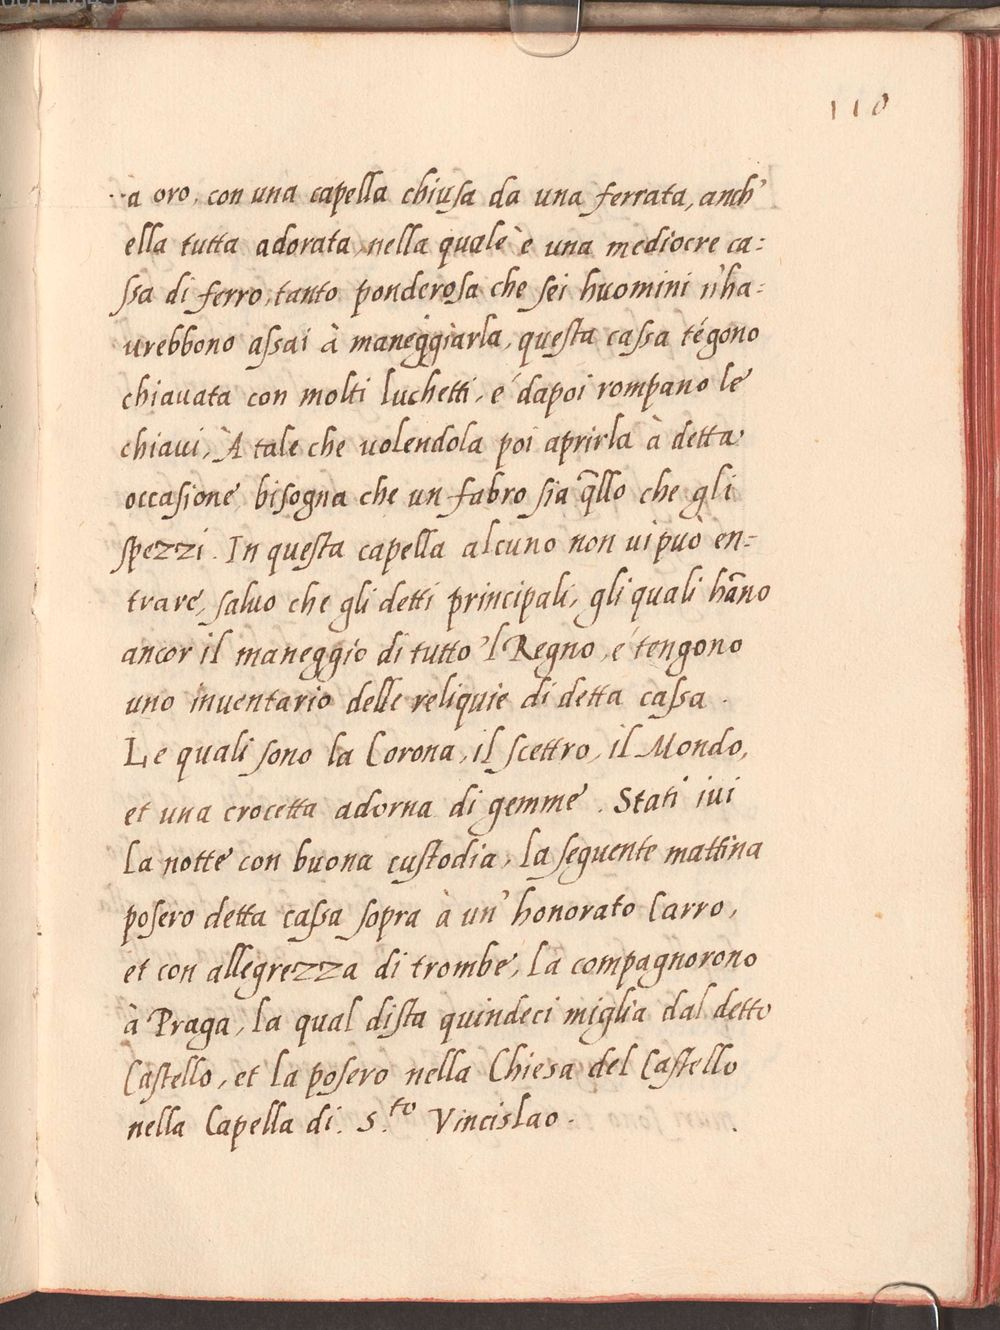 110
à oro, con una capella chiusa da una ferrata, anch'
ella tutta adorata, nella quale è una mediocre ca=
ssa di ferro, tanto ponderosa che sei huomini n'ha=
urebbono assai à maneggiarla, questa cassa tēgono
chiauata con molti luchetti, é dapoi rompano le
chiaui, À tale che uolendola poi aprirla à detta
occasione bisogna che un fabro sia q̄llo che gli
spezzi. In questa capella alcuno non ui può en=
trare, saluo che gli detti principali, gli quali hāno
ancor il maneggio di tutto 'l Regno, é tengono
uno inuentario delle reliquie di detta cassa.
Le quali sono la Corona, il scettro, il Mondo,
et una crocetta adorna di gemme. Stati iui
la notte con buona custodia, la seguente mattina
posero detta cassa sopra à un' honorato Carro,
et con allegrezza di trombe, la compagnorono
à Praga, la qual dista quindeci miglia dal detto
Castello, et la posero nella Chiesa del Castello
nella Capella di S.to Vincislao.